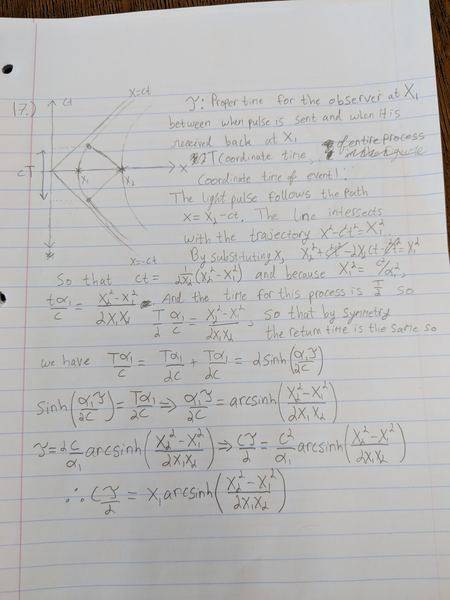 17.)
ct
x=ct
cT
x₁
x₂
x
x=ct
𝒯: Proper time for the observer at X₁
between when pulse is sent and when it is
received back at X₁
2T Coordinate time, of entire process
Coordinate time of event 1:
The light pulse follows the path
x = X₂-ct. The line intersects
with the trajectory x²-c²t²=X₁²
By substituting x, X₂²+c²t²-2X₂ct-c²t²=X₁²
So that ct = 1/2X₂ (X₂²-X₁²) and because X₁² = c⁴/α₁²,
tα₁/c = X₂²-X₁²/2X₁X₂ And the time for this process is T/2 so
T/2 α₁/c = X₂²-X₁²/2X₁X₂, so that by symmetry
the return time is the same so
we have Tα₁/c = Tα₁/2c + Tα₁/2c = 2sinh(α₁𝒯/2c)
Sinh(α₁𝒯/2c) = Tα₁/2c ⇒ α₁𝒯/2c = arcsinh(X₂²-X₁²/2X₁X₂)
𝒯 = 2c/α₁ arcsinh(X₂²-X₁²/2X₁X₂) ⇒ c𝒯/2 = c²/α₁ arcsinh(X₂²-X₁²/2X₁X₂)
∴ c𝒯/2 = X₁ arcsinh(X₂²-X₁²/2X₁X₂)